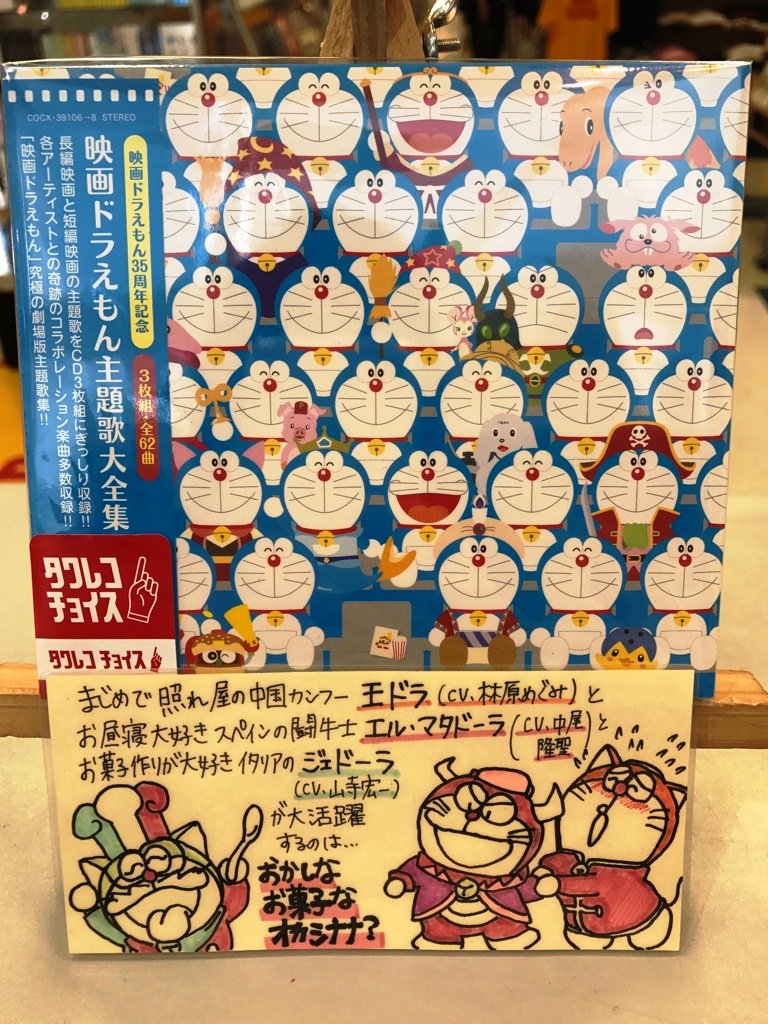 COCX-39106→8 STEREO
映画ドラえもん35周年記念
3枚組 全62曲
映画ドラえもん主題歌大全集
長編映画と短編映画の主題歌をCD3枚組にぎっしり収録!!
各アーティストとの奇跡のコラボレーション楽曲多数収録!!
「映画ドラえもん」究極の劇場版主題歌集!!
タワレコ
チョイス
タワレコ チョイス
まじめで照れ屋の中国カンフー 王ドラ(CV.林原めぐみ)と
お昼寝大好きスペインの闘牛士 エル・マタドーラ(CV.中尾隆聖)と
お菓子作りが大好きイタリアの ジェドーラ
(CV.山寺宏一)
が大活躍
するのは…
おかしな
お菓子な
オカシナナ?